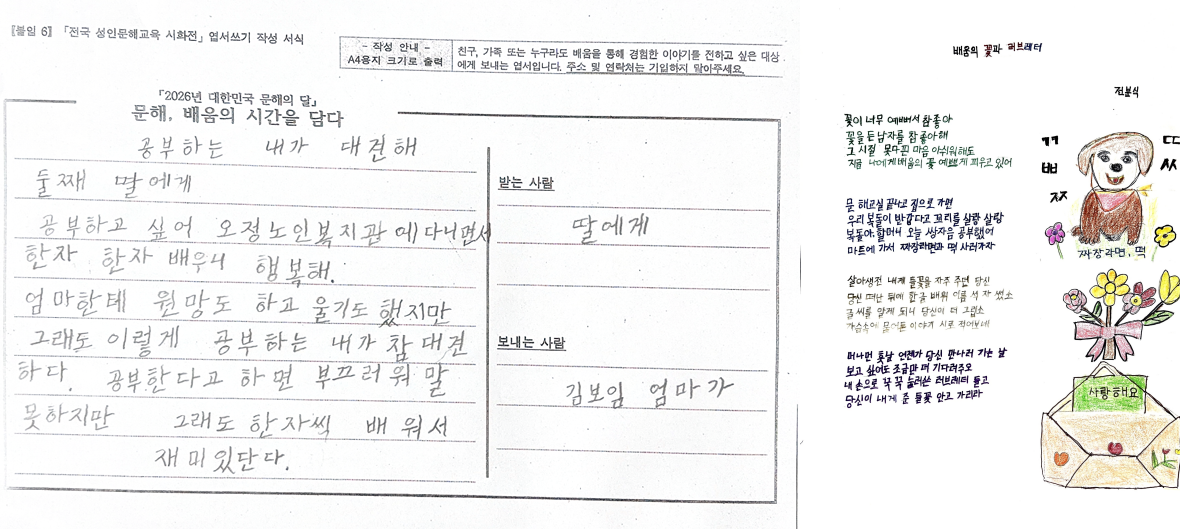 [붙임 6] 「전국 성인문해교육 시화전」 엽서쓰기 작성 서식
- 작성 안내 -
A4용지 크기로 출력
친구, 가족 또는 누구라도 배움을 통해 경험한 이야기를 전하고 싶은 대상
에게 보내는 엽서입니다. 주소 및 연락처는 기입하지 말아주세요.
「2026년 대한민국 문해의 달」
문해, 배움의 시간을 담다
공부하는 내가 대견해
둘째 딸에게
공부하고 싶어 오정노인복지관에 다니면서
한자 한자 배우니 행복해.
엄마한테 원망도 하고 울기도 했지만
그래도 이렇게 공부하는 내가 참 대견
하다. 공부한다고 하면 부끄러워 말
못하지만 그래도 한자씩 배워서
재미있단다.
받는 사람
딸에게
보내는 사람
김보임 엄마가
배움의 꽃과 러브레터
전분식
꽃이 너무 예뻐서 참 좋아
꽃을 든 남자를 참 좋아해
그 시절 못다 핀 마음 아쉬워해도
지금 나에게 배움의 꽃 예쁘게 피우고 있어
문해교실 끝나고 집으로 가면
우리 복돌이 반갑다고 꼬리를 살랑 살랑
복돌아 할머니 오늘 쌍자음 공부했어
마트에 가서 짜장라면과 떡 사러가자
살아생전 내게 들꽃을 자주 주던 당신
당신 떠난 뒤에 한글 배워 이름 석 자 썼소
글씨를 알게 되니 당신이 더 그립소
가슴속에 묻어둔 이야기 시로 적어보네
떠나면 훗날 언젠가 당신 만나러 가는 날
보고 싶어도 조금만 더 기다려주오
내 손으로 꾹 꾹 눌러쓴 러브레터 들고
당신이 내게 준 들꽃 안고 가리라
ㄲ ㄸ
ㅃ ㅆ
ㅉ
짜장라면, 떡
사랑해요